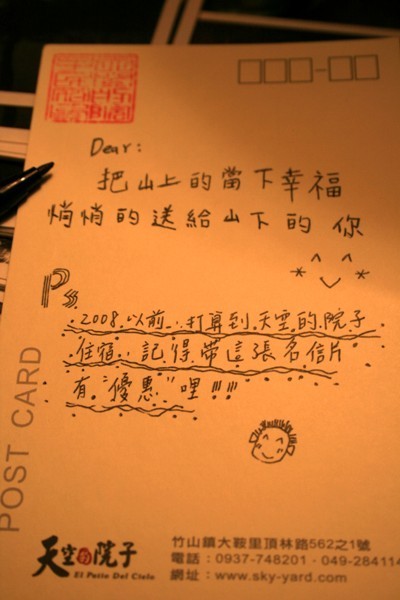 Dear:
把山上的當下幸福
悄悄的送給山下的你
PS
2008以前∴打算到天空的院子
住宿∴記得帶這張名信片
有"優惠"哩!!!
POST CARD
天空的院子
El Patio Del Cielo
竹山鎮大鞍里頂林路562之1號
電話:0937-748201‧049-284114
網址:www.sky-yard.com